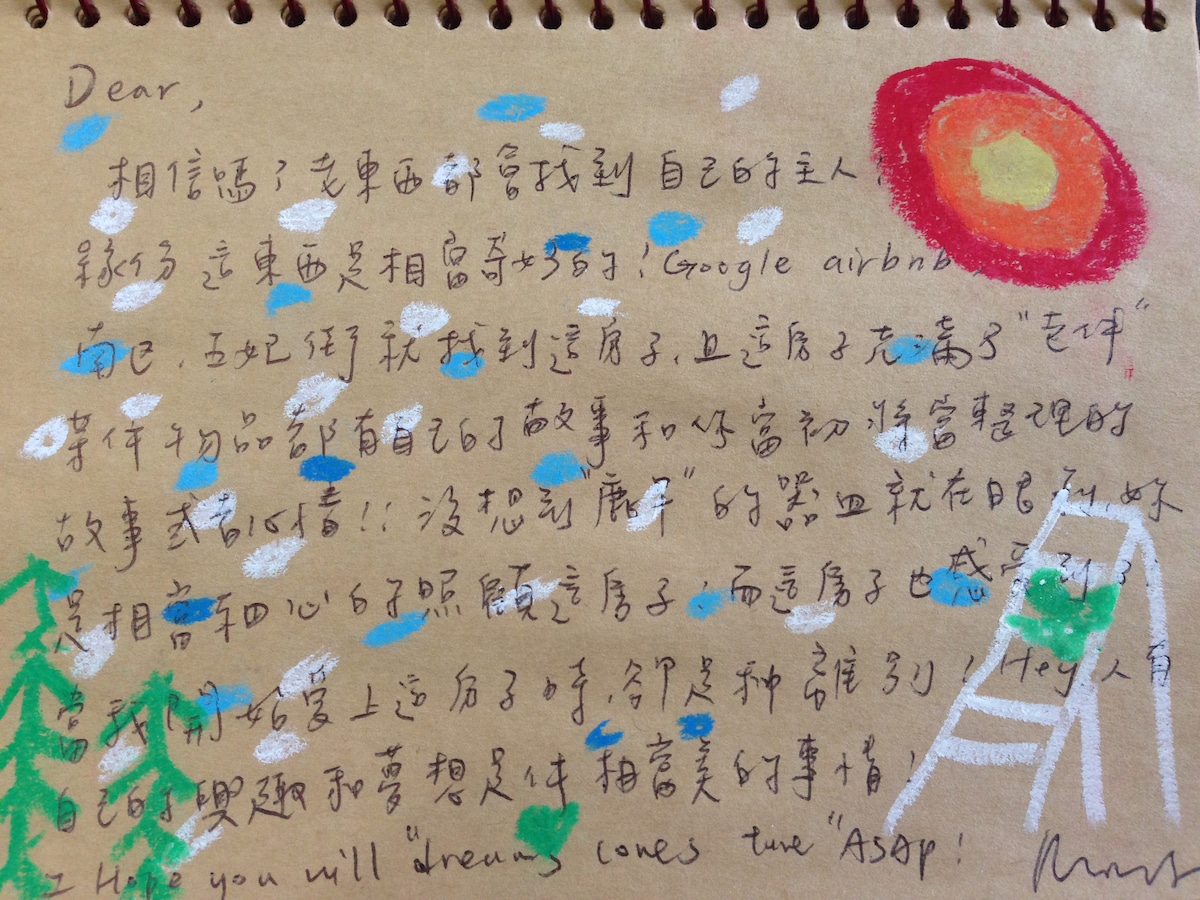 Dear,
相信嗎?老東西都會找到自己的主人!
緣份這東西是相當奇妙的!Google airbnb
南區,五妃街就找到這房子,且這房子充滿了"老件"
某件物品都有自己的故事和你當初將當整理的
故事或者心情!!沒想到"鹿早"的器皿就在眼到,妳
是相當細心的照顧這房子!而這房子也感受到了
當我開始愛上這房子時,卻是種離別!Hey,人有
自己的興趣和夢想是件相當美的事情!
I Hope you will "dreams comes ture" ASAp!